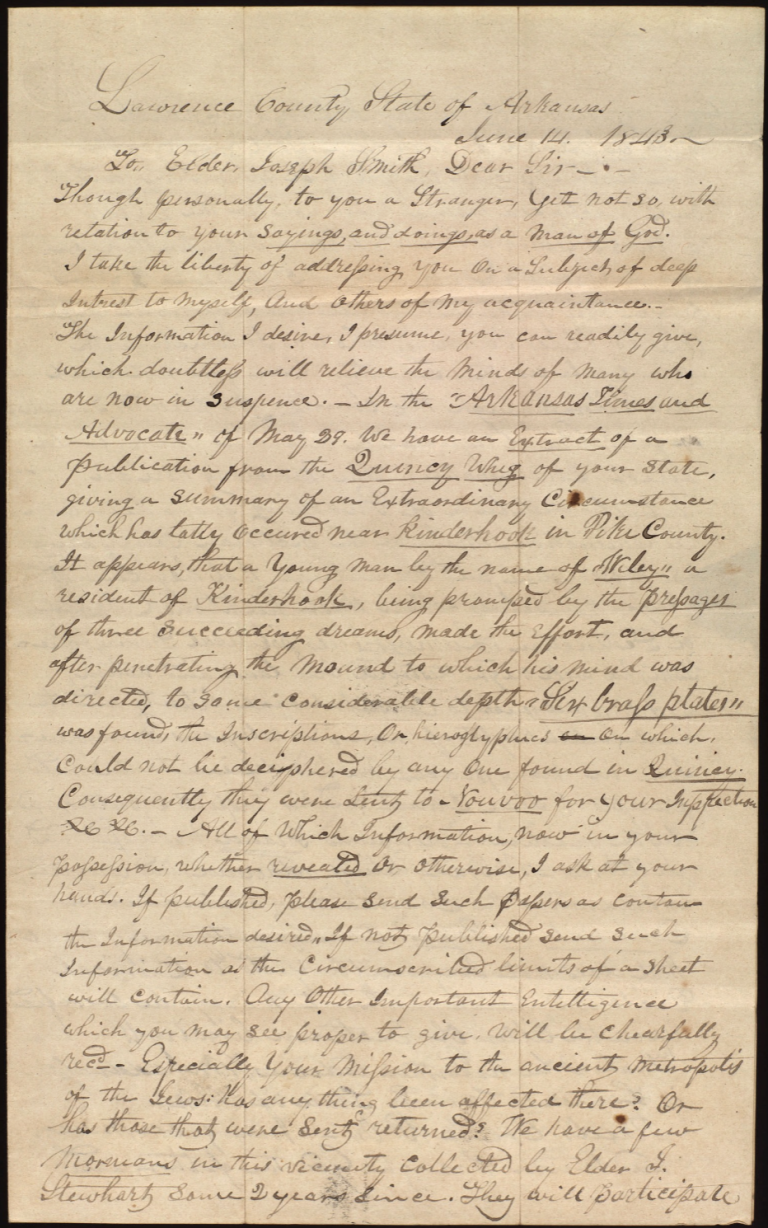 Lawrence County, State of Arkansas
June 14. 1843.
To, Elder, Joseph Smith, Dear Sir -
Though personally, to you a Stranger, yet not so, with
relation to your sayings, and doings, as a man of God.
I take the liberty of addressing you on a Subject, of deep
Intrest to myself, And others of my acquaintance. -
The Information I desire, I presume, you can readily give,
which doubtless will relieve the minds of many who
are now in suspence. - In the "Arkansas Times and
Advocate" of May 29. We have an Extract of a
publication from the Quincy Whig of your State,
giving a summary of an Extraordinary Circumstance
which has latly occured near Kinderhook in Pike County.
It appears, that a Young man by the name of "Wiley" a
resident of Kinderhook, being prompted by the presages
of three succeeding dreams, made the Effort, and
after penetrating the mound to which his mind was
directed, to some considerable depth "Six brass plates"
was found, the Inscriptions, Or hieroglyphics on On which,
Could not be deciphered by any One found in Quincy.
Consequently they were Sent, to Nouvoo for your Inspection
&c &c. - All of Which Information, now in your
possession, whether revealed Or otherwise, I ask at your
hands. If published, please send such papers as contain
the Information desired, If not published send such
Information as the Circumscribed limits of a sheet
will contain. Any Other Important Entelligence
which you may see proper to give, will be chearfully
recd - Especially Your Mission to the ancient metropolis
of the Jews: Has any thing been affected there? Or
has those that were Sent, returned? We have a few
Mormans in this vicinity Collected by Elder J.
Stewhart, some 2 years since. They will participate